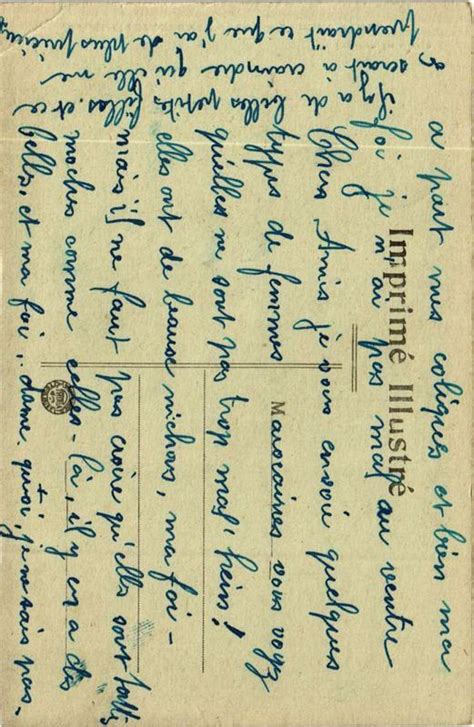 a part mes coliques et bien ma
foi je n'ai pas mal au ventre
Imprimé Illustré
Chers Amis je vous envoie quelques
types de femmes Marocaines vous voyez
qu'elles ne sont pas trop mal, hein!
elles ont de beaux nichons, ma foi -
mais il ne faut pas croire qu'elles sont toutes
moches comme celles-là, il y en a des
belles, et ma foi, dame, quoi, je ne sais pas.
Il y a de belles petites filles. et ce
serait à craindre qu'elle me
prendrait ce que j'ai de plus précieux